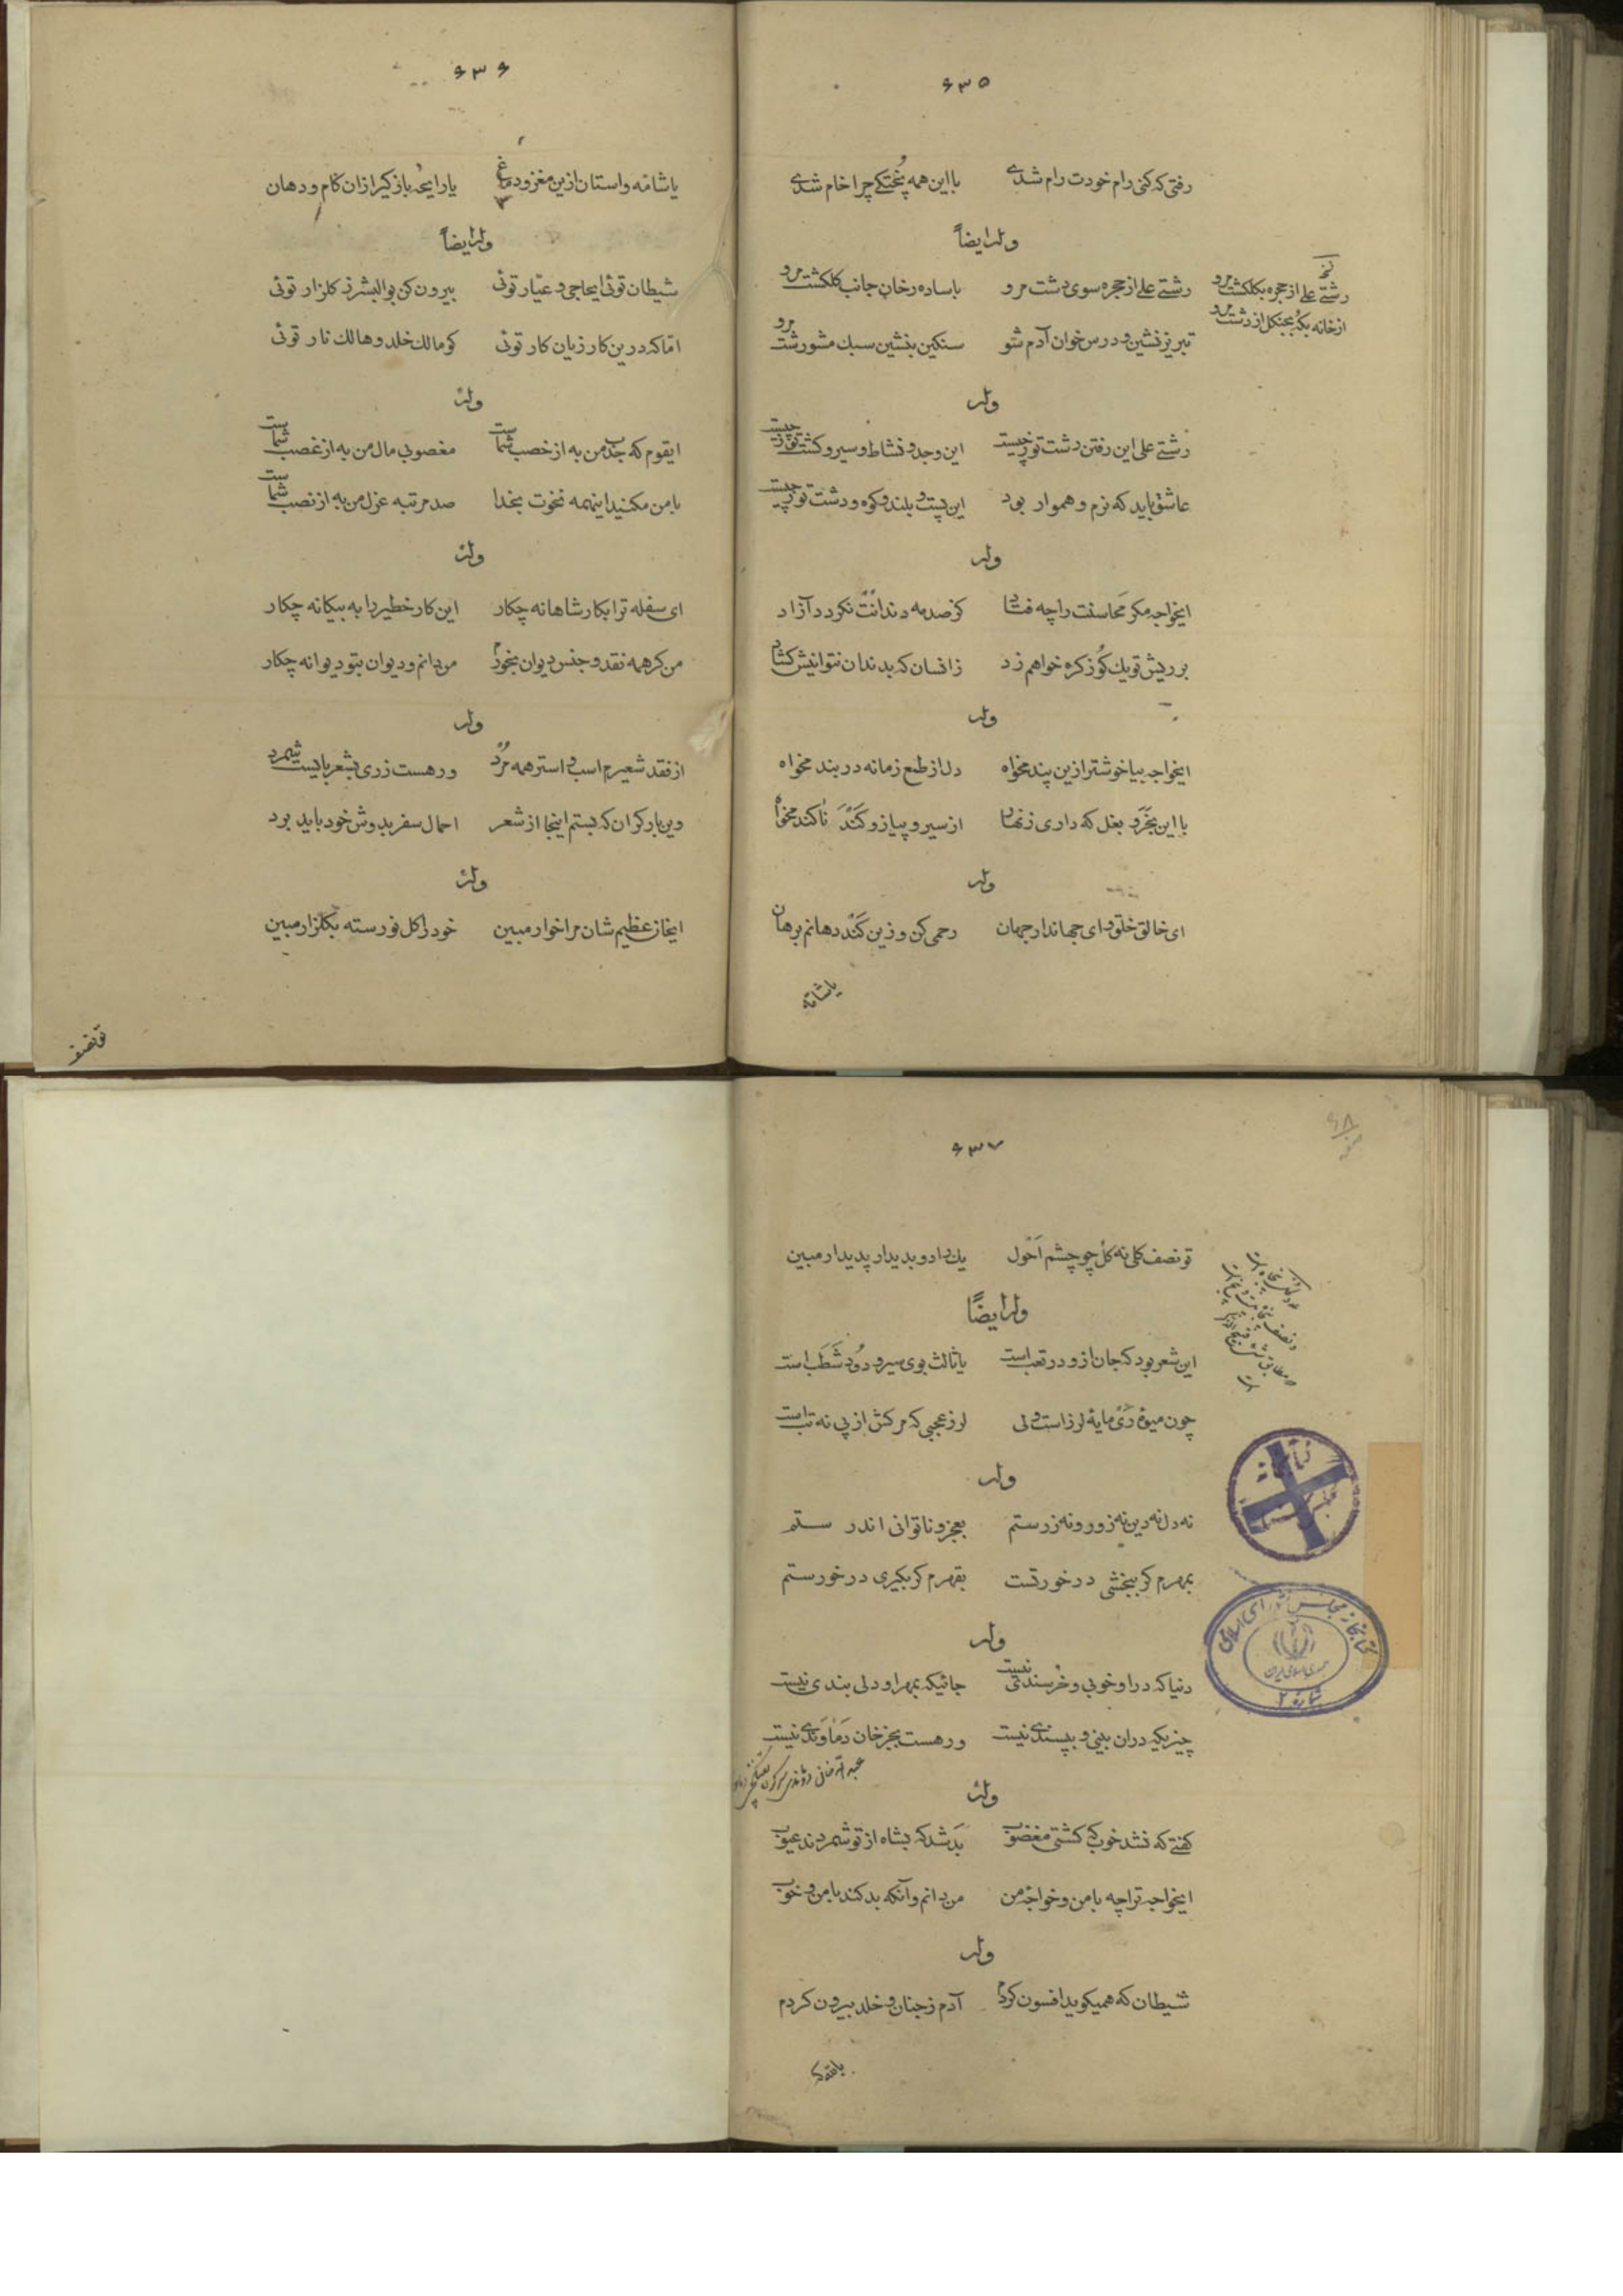 ۶۳۵
رفتی که کنی رام خودت رام شدی بااین همه پختگی چرا خام شدی
وله ایضاً
رشتی علی از حجره سوی دشت مرو باساده رخان جانب گلگشت مرو
تبریز نشین و درس خوان آدم شو سنگین بنشین سبک مشو رشت مرو
نخ
رشتی علی از حجره بگلگشت مرو
از خانه بکه بجنگل از دشت مرو
وله
رشتی علی این رفتن دشت تو ز چیست این وجد و نشاط و سیر و گشت تو ز چیست
عاشق باید که نرم و هموار بود این پست و بلند و کوه و دشت تو ز چیست
وله
ایخواجه مگر محاسنت را چه فتاد کز صدمه دندانت نگردد آزاد
بر ریش تو یک گوز گره خواهم زد زانسان که بدندان نتوانیش گشاد
وله
ایخواجه بیا خوشتر ازین پند مخواه دل از طمع زمانه در بند مخواه
بااین بخر و بغل که داری زنهار از سیر و پیاز و گند ناکند مخواه
وله
ای خالق خلق و ای جهاندار جهان رحمی کن و زین گند دهانم برهان
یاشامه
۶۳۶
یاشامه واستان ازین مغز و دماغ یارایحه بازگیر ازان کام و دهان
وله ایضاً
شیطان توئی ایحاجی و عیار توئی بیرون کن بوالبشر ز گلزار توئی
اما که درین کار زیان کار توئی کو مالک خلد و هالک نار توئی
وله
ایقوم که جدب من به از خصب شماست مغصوبی مال من به از غصب شماست
بامن مکنید اینهمه نخوت بخدا صد مرتبه عزل من به از نصب شماست
وله
ای سفله ترا بکار شاهانه چکار این کار خطیر را به بیگانه چکار
من گر همه نقد و جنس دیوان بخورم من دانم و دیوان بتو دیوانه چکار
وله
از فقد شعیرم اسب و استر همه مرد ور هست زری بشعر بایست شمرد
وین بار گران که بستم اینجا از شعر احمال سفر بدوش خود باید برد
وله
ایخان عظیم شان مرا خوار مبین خود را گل نورسته بگلزار مبین
تو نصف
۶۳۷
تو نصف گلی نه گل چو چشم احول یک را دو بدیدار پدیدار مبین
وله ایضاً
این شعر بود که جان ازو در تعب است یا ثالث بوی سیر و دود شطب است
چون میوه دی مایه لرز است ولی لرز عجبی که مرگش از پی نه تب است
وله
نه دل نه دین نه زور و نه زر ستم بعجز و ناتوانی اندر ستم
بمهرم گر ببخشی در خور تست بقهرم گر بگیری در خور ستم
وله
دنیا که در او خوبی و خرسندی نیست جائیکه بمهر او دلی بندی نیست
چیزیکه دران بینی و بپسندی نیست ور هست بجز خان دماوندی نیست
وله
گفتی که نشد خوب که گشتی مغضوب بد شد که بشاه از تو شمردند عیوب
ایخواجه ترا چه بامن و خواجه من من دانم و آنکه بد کند با من و خوب
وله
شیطان که همیگوید افسون کردم آدم ز جنان و خلد بیرون کردم
کتابخانه مجلس شورای اسلامی
جمهوری اسلامی ایران
شماره ۲